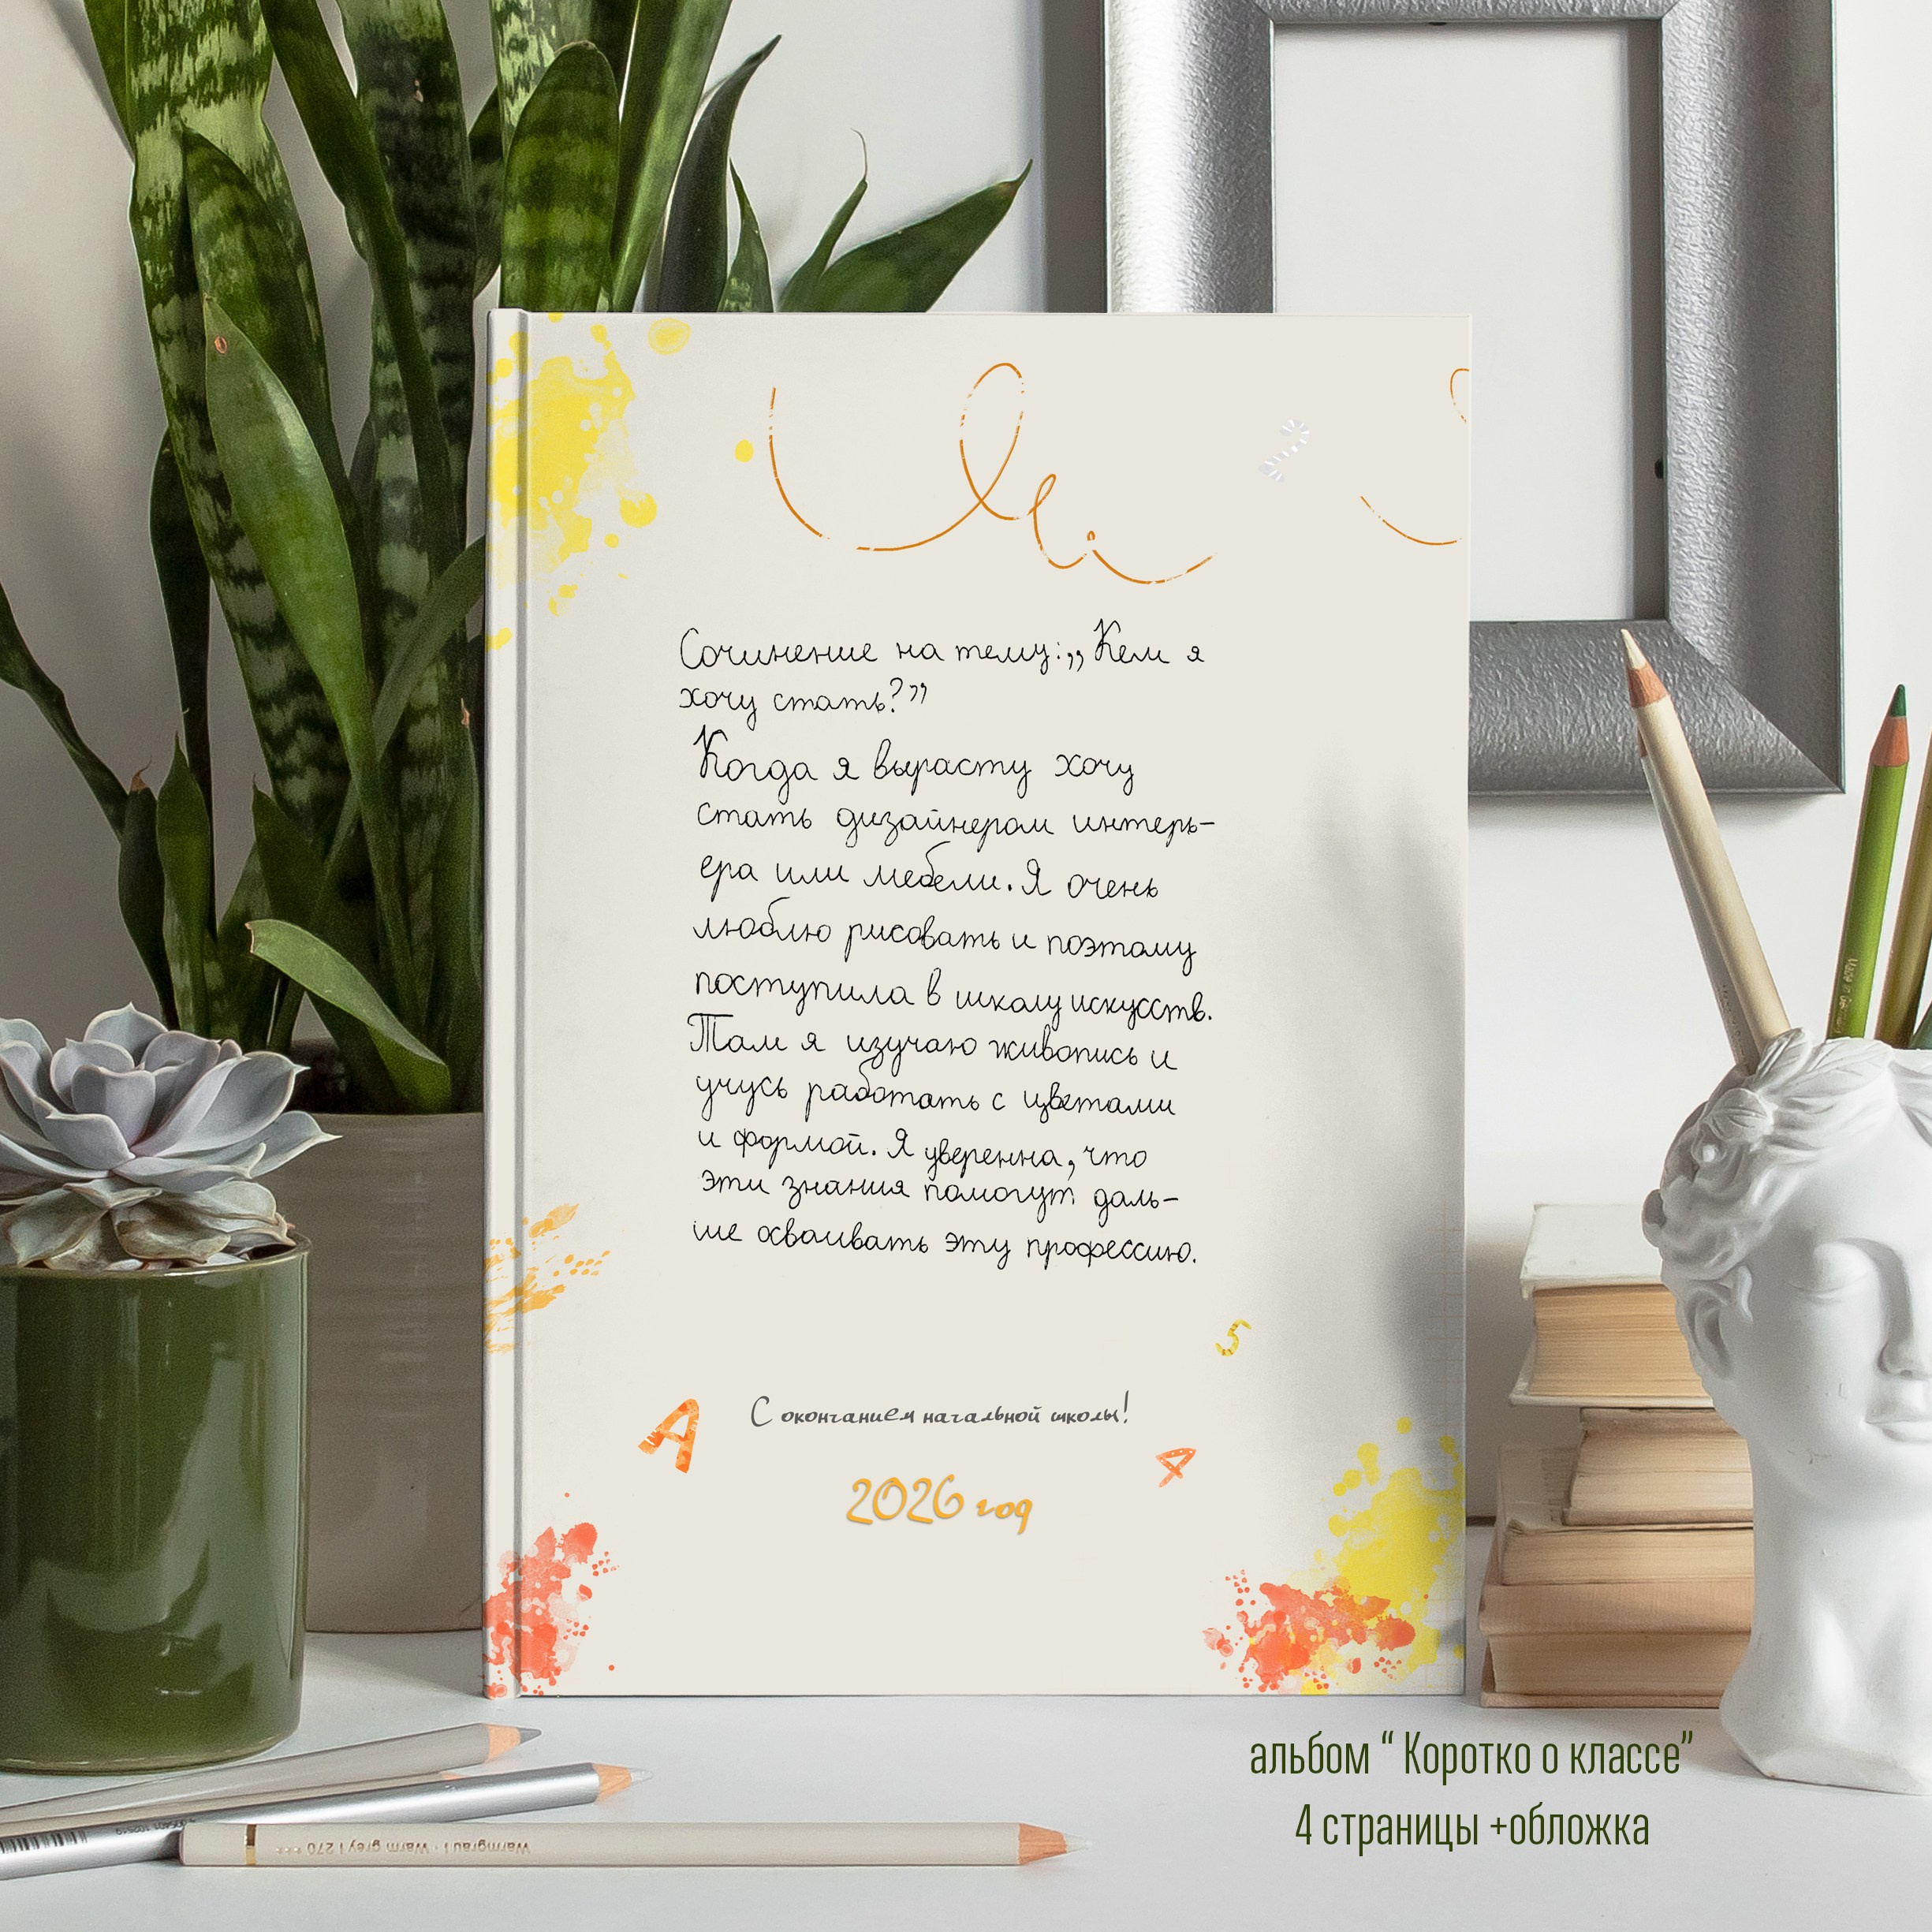 Сочинение на тему: „Кем я
хочу стать?”
Когда я вырасту хочу
стать дизайнером интерь-
ера или мебели. Я очень
люблю рисовать и поэтому
поступила в школу искусств.
Там я изучаю живопись и
учусь работать с цветами
и формой. Я уверенна, что
эти знания помогут даль-
ше осваивать эту профессию.
5
А
С окончанием начальной школы!
4
2026 год
2
альбом “ Коротко о классе”
4 страницы +обложка
Warmgrau I · Warm grey I 270 ***